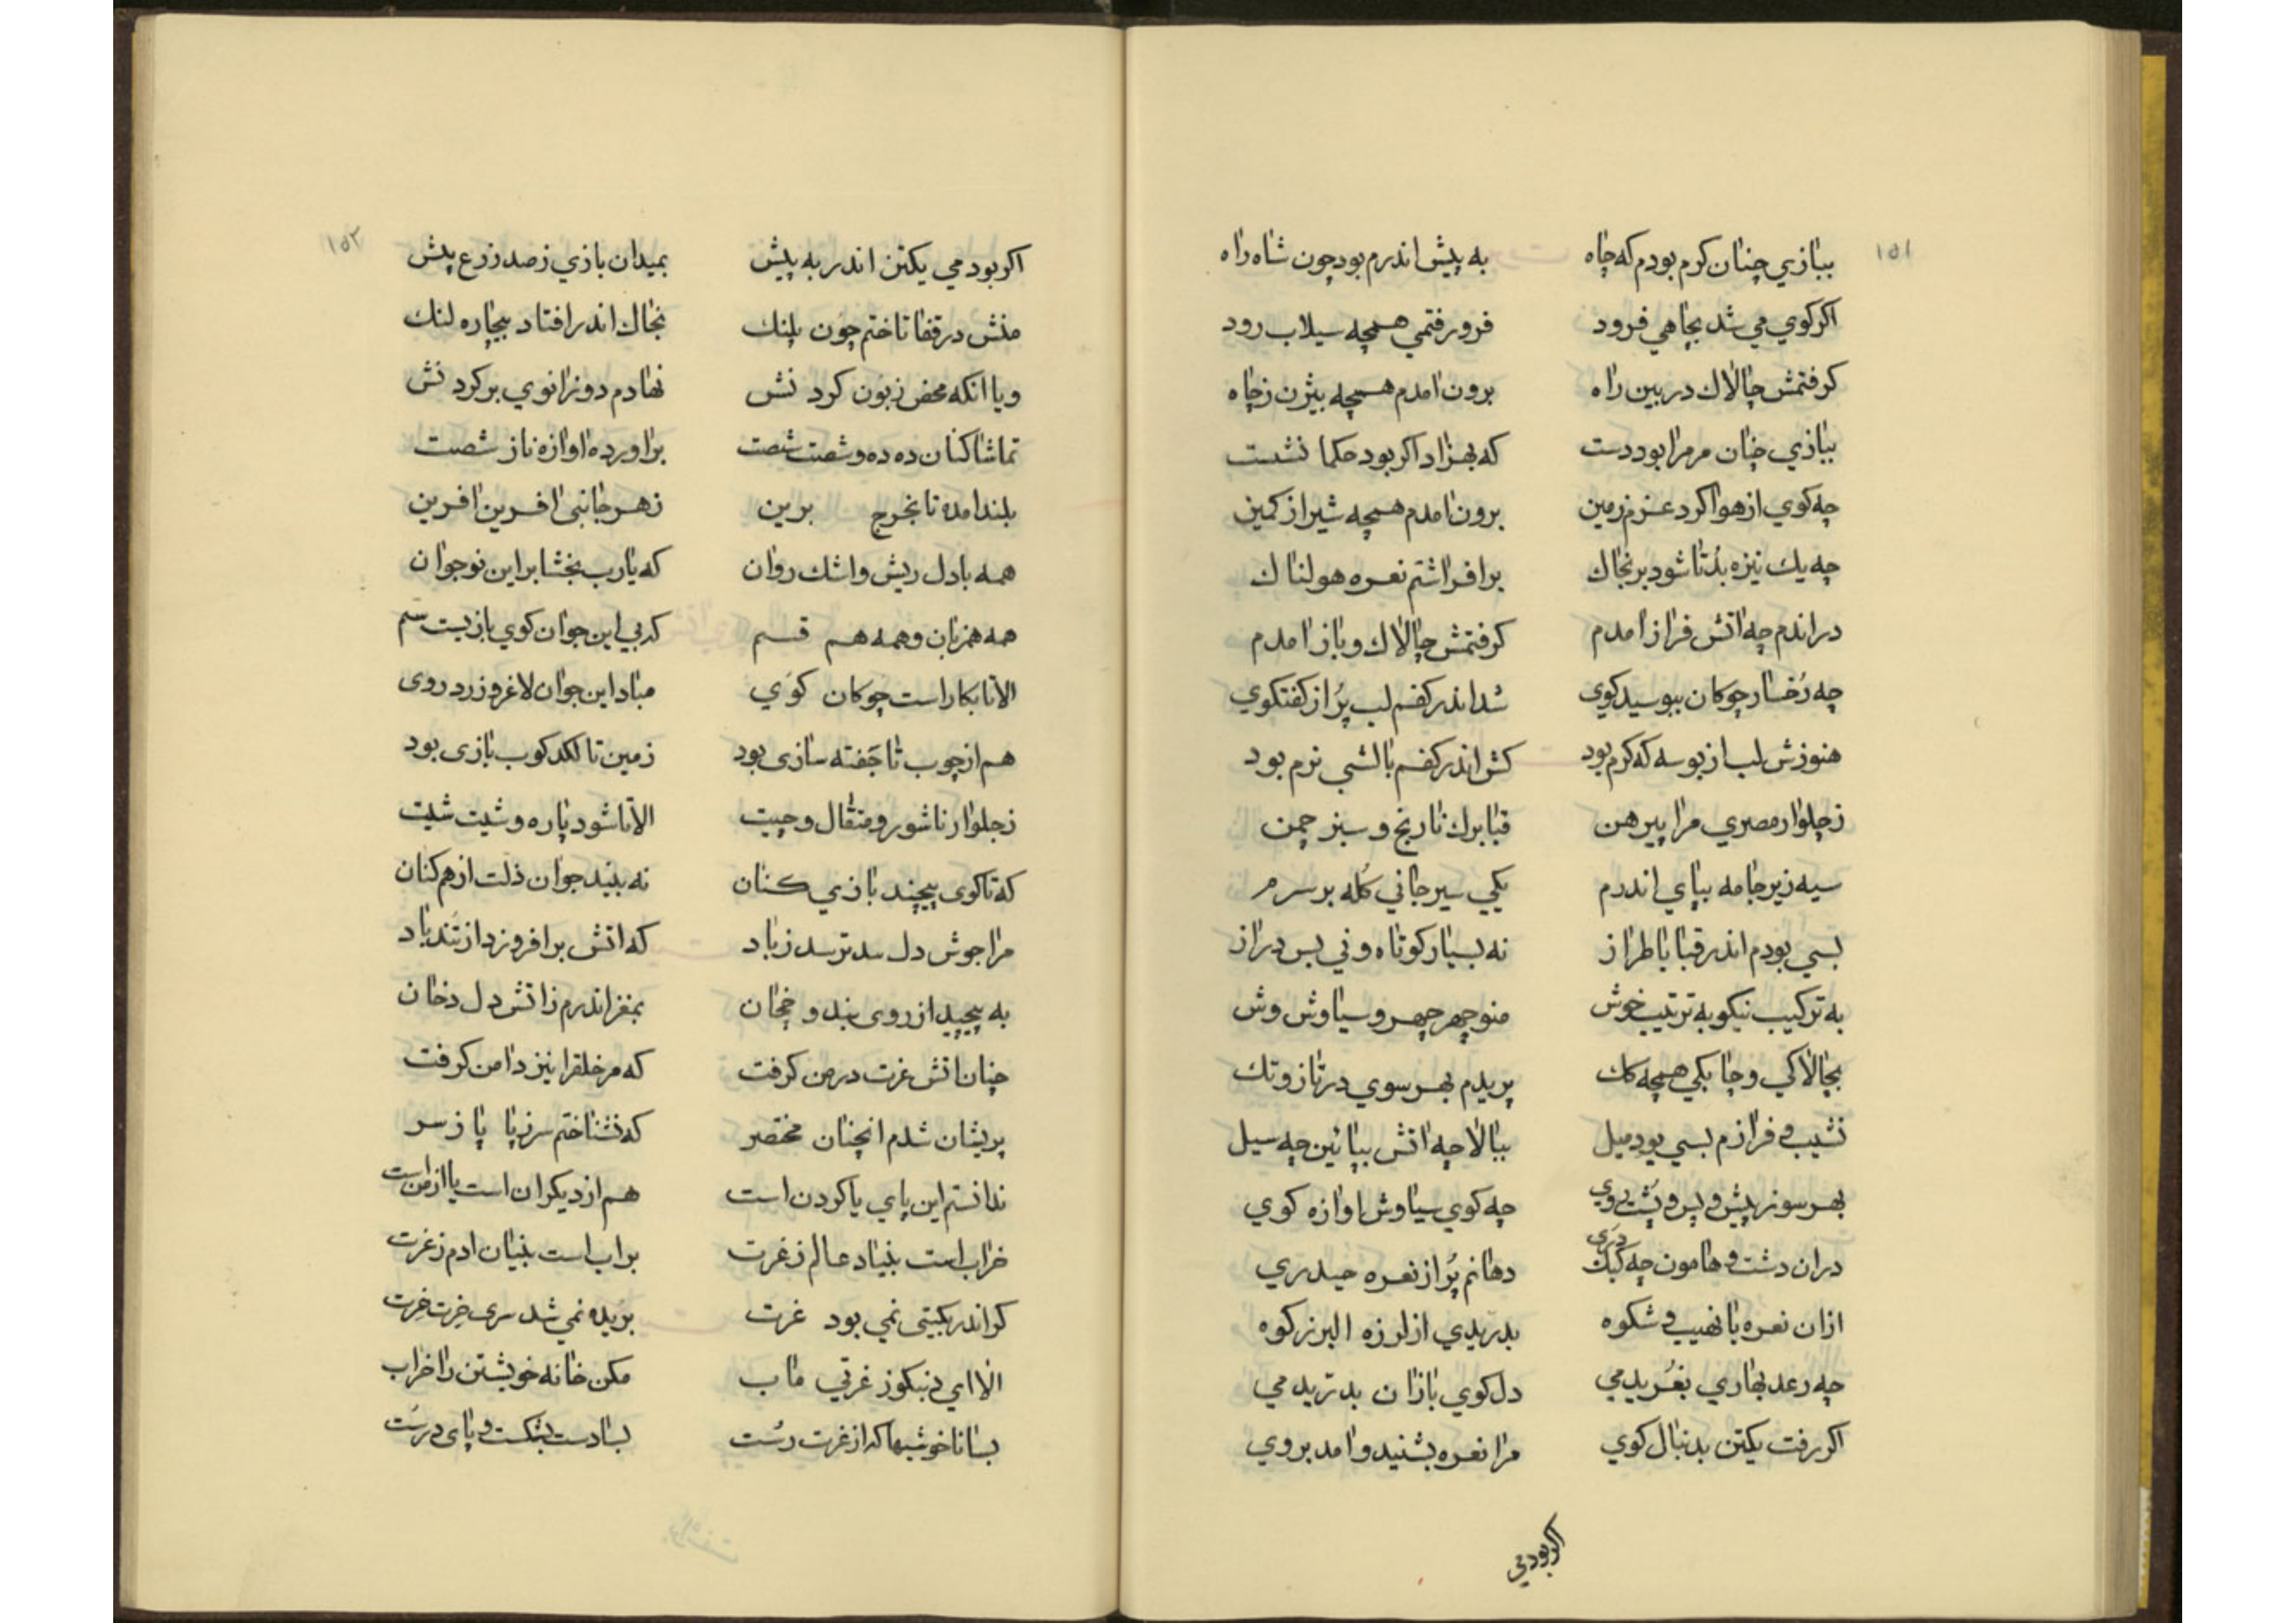 ١٥١
ببازي چنان کرم بودم که چاه به پیش اندرم بود چون شاه راه
اکر کوي مي شد بچاهي فرود فرورفتمي همچه سیلاب رود
کرفتمش چالاك در بین راه برون امدم همچه بیژن زچاه
ببازي چنان مرمرا بود دست که بهزاد اکر بود حکما نشست
چه کوي از هوا کرد عزم زمین برون امدم همچه شیر از کمین
چه یك نیزه بُد تا شود بر بخاك برافراشتم نعره هولناك
دراندم چه اتش فراز امدم کرفتمش چالاك و باز امدم
چه رُخسار چوکان ببوسید کوي شد اندر کفم لب پُر از کفتکوي
هنوزش لب از بوسه که کرم بود کش اندر کفم بالشي نرم بود
زچلوار مصري مرا پیرهن قبا برك نارنج و سبز چمن
سیه زیر جامه بپاي اندرم یکي سیرجاني کُله بر سرم
بسي بودم اندر قبا با طراز نه بسیار کوتاه و ني بس دراز
به ترکیب نیکو به ترتیب خوش منوچهر چهر و سیاوش وش
بچالاکي و چابکي همچه کك پریدم بهر سوي در تاز و تك
نشیب و فرازم بسي بود میل ببالا چه اتش بپائین چه سیل
بهر سو ز پیش و پس و پُشت و روي چه کوي سیاوش اوازه کوي
دران دشت و هامون چه کبك دري دهانم پُر از نعره حیدري
ازان نعره با نهیب و شکوه بدریدي از لرزه البرز کوه
چه رعد بهاري بغُریدمي دل کوي بازان بدریدمي
اکر رفت یکتن بدنبال کوي مرا نعره بشنید و امد بروي
اکر بودمي
١٥٢
اکر بودمي یکتن اندر به پیش بمیدان بازي زصد زرع پیش
منش در قفا تاختم چون پلنك بخاك اندر افتاد بیچاره لنك
ویا انکه محض زبون کردنش نهادم دو زانوي بر کردنش
تماشا کنان ده ده و شصت شصت براورده اوازه ناز شصت
بلند امده تا بخرج برین زهر جانبی افرین افرین
همه با دل ریش و اشك روان که یارب بخشا بر این نوجوان
همه همزبان و همه هم قسم که بي این جوان کوي بازیست سم
الا تا بکار است چوکان کوي مباد این جوان لاغر و زرد روی
هم از چوب تا جَفته سازی بود زمین تا لکد کوب بازی بود
زچلوار ناشور و متقال و چیت الا تا شود پاره و شیت شیت
که تا کوی پیچند بازي کنان نه بیند جوان ذلت از هم کنان
مرا جوش دل سد ترسد زباد که اتش برافروزد از تند باد
به پیچید از روی بند و خچان بمغز اندرم زاتش دل دخان
چنان اتش غرت در من کرفت که مر خلقرا نیز دامن کرفت
پریشان شدم انچنان مختصر که نشناختم سر زپا پا زسر
ندانستم این پاي یا کردن است هم از دیکران است یا از من است
خراب است بنیاد عالم زغرت براب است بنیان ادم زغرت
کر اندر بکیتی نمي بود غرت بریده نمي شد سری خرت خرت
الا اي نیکوز غرتي ماب مکن خانه خویشتن را خراب
بسا ناخوشیها که از غرت رُست بسا دست بشکست و پای درست